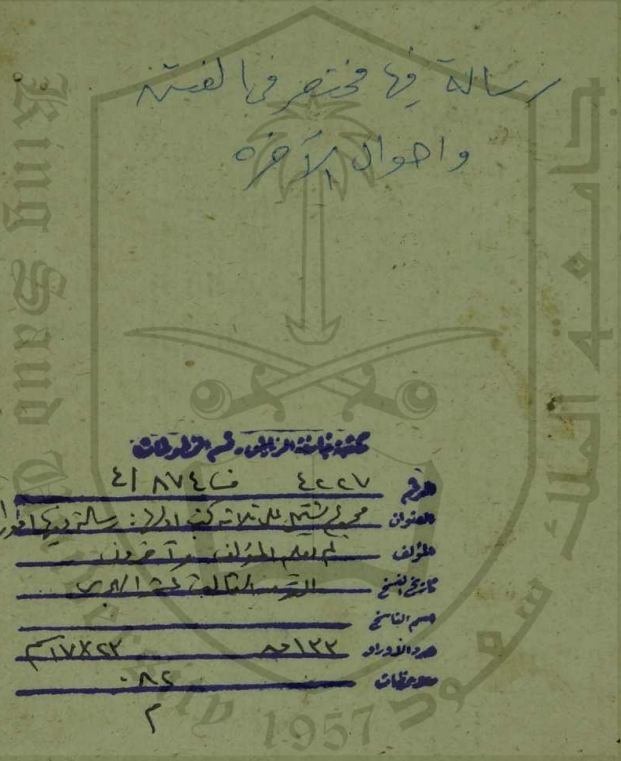 رسالة فيها مختصر في الفتن
واحوال الآخرة
مكتبة جامعة الرياض - قسم المخطوطات
الرقم ٤٢٢٧ ف ٨٧٤ / ٤
العنوان مجموع يشتمل على ثلاثة كتب اولها: رسالة فيها
المؤلف لم يعلم المؤلف وآخرون
تاريخ النسخ القرن الثالث عشر الهجري
اسم الناسخ
عدد الأوراق ١٣٣ ١٧×٢٣ سم
ملاحظات ٠٨٢
م
King Saud University
1957
جامعة الملك سعود